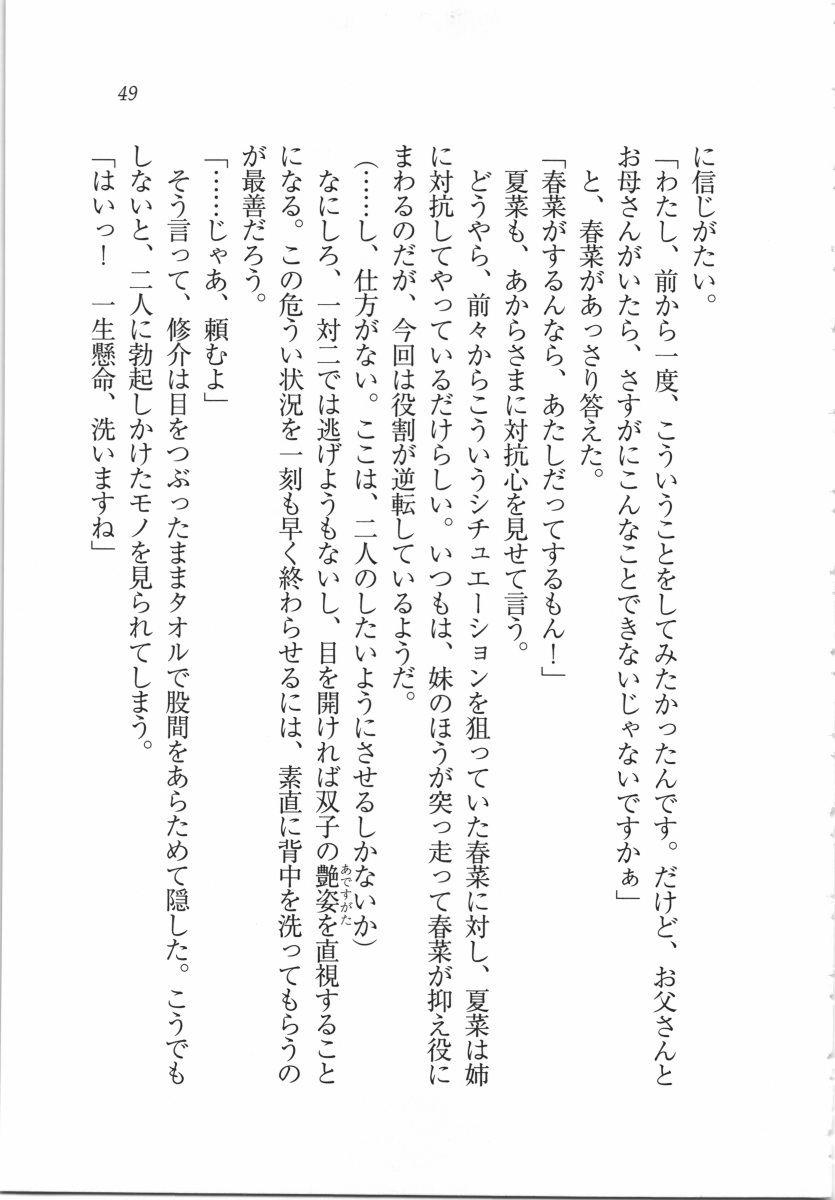 49
に信じがたい。
「わたし、前から一度、こういうことをしてみたかったんです。だけど、お父さんと
お母さんがいたら、さすがにこんなことできないじゃないですかぁ」
と、春菜があっさり答えた。
「春菜がするんなら、あたしだってするもん!」
夏菜も、あからさまに対抗心を見せて言う。
どうやら、前々からこういうシチュエーションを狙っていた春菜に対し、夏菜は姉
に対抗してやっているだけらしい。いつもは、妹のほうが突っ走って春菜が抑え役に
まわるのだが、今回は役割が逆転しているようだ。
(……し、仕方がない。ここは、二人のしたいようにさせるしかないか)
なにしろ、一対二では逃げようもないし、目を開ければ双子の艶姿を直視すること
あですがた
になる。この危うい状況を一刻も早く終わらせるには、素直に背中を洗ってもらうの
が最善だろう。
「……じゃあ、頼むよ」
そう言って、修介は目をつぶったままタオルで股間をあらためて隠した。こうでも
しないと、二人に勃起しかけたモノを見られてしまう。
「はいっ!　一生懸命、洗いますね」